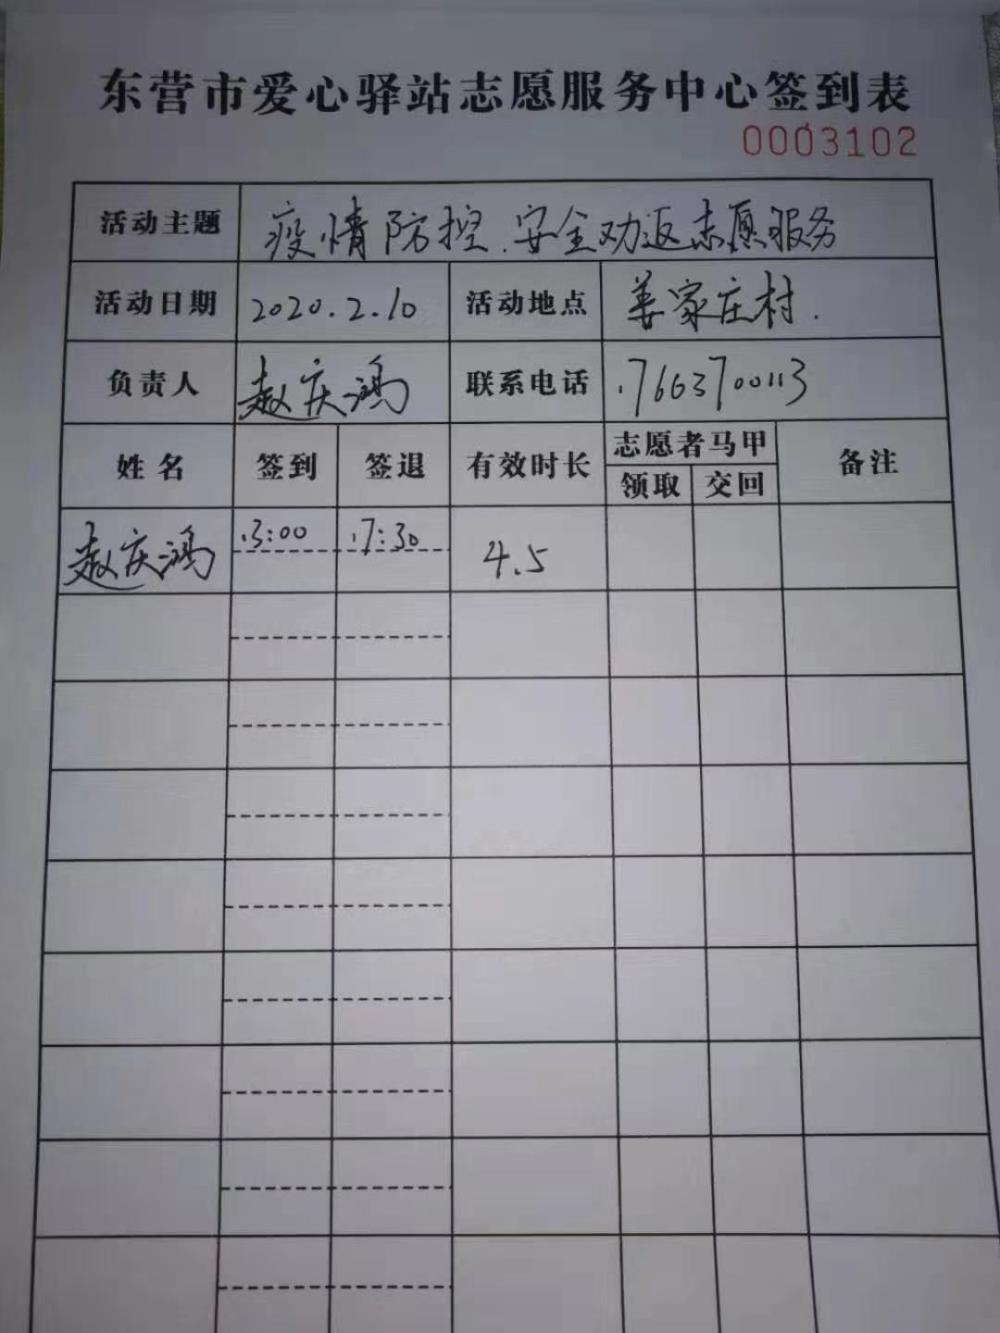 东营市爱心驿站志愿服务中心签到表
0003102
活动主题 疫情防控.安全劝返志愿服务
活动日期 2020.2.10 活动地点 姜家庄村.
负责人 赵庆鸿 联系电话 17663700113
姓名 签到 签退 有效时长 志愿者马甲 备注
领取 交回
赵庆鸿 13:00 17:30 4.5